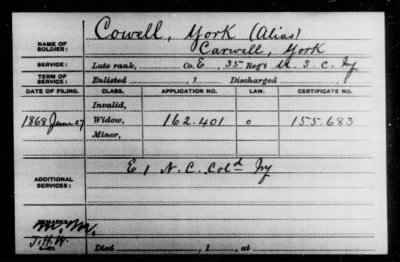 Cowell, York (Alias)
NAME OF SOLDIER: Carwell, York
SERVICE: Late rank, Co. E, 35 Reg't U. S. C. Iy
TERM OF SERVICE: Enlisted , 1 Discharged , 1
DATE OF FILING. CLASS. APPLICATION NO. LAW. CERTIFICATE NO.
Invalid,
1868 June 27 Widow, 162.401 o 155.683
Minor,
ADDITIONAL SERVICES: E 1 N. C. Cold Iy
REMARKS:
J.H.W. Died , 1 , at